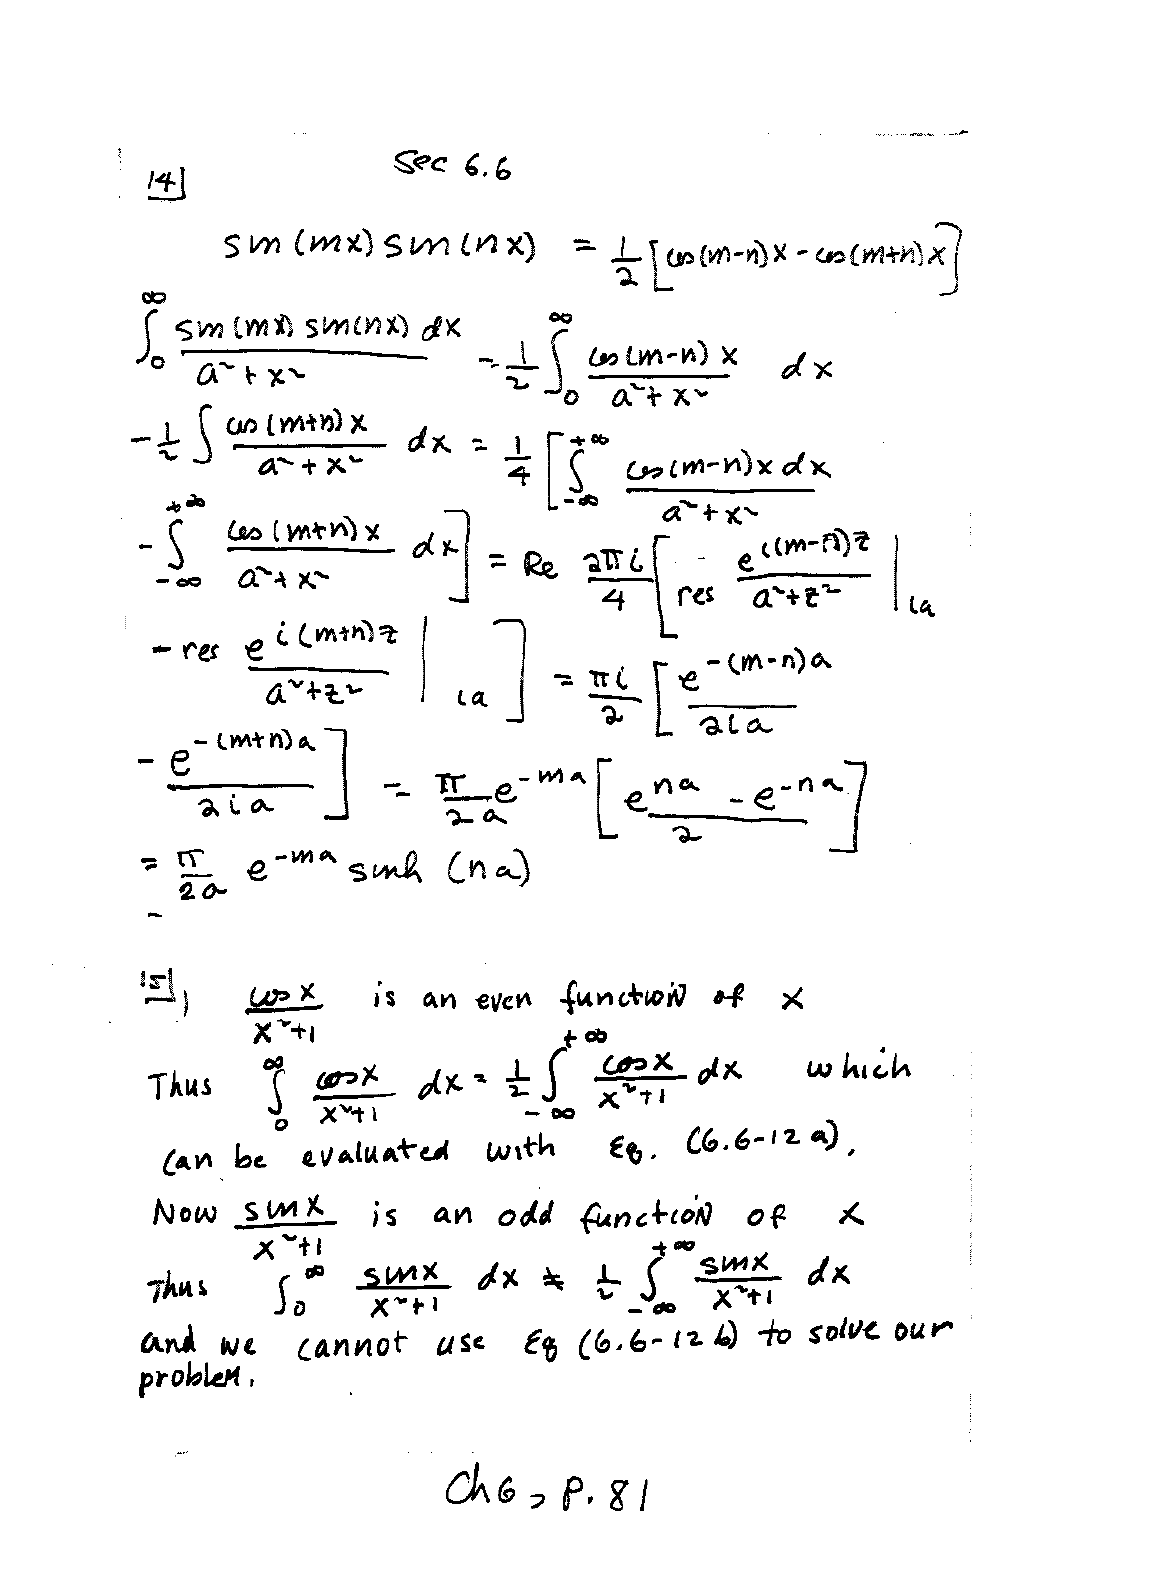 Sec 6.6
14]
sin (mx) sin (nx) = 1/2 [cos(m-n)x - cos(m+n)x]
∫₀^∞ sin(mx) sin(nx) dx / (a²+x²) = 1/2 ∫₀^∞ cos(m-n)x / (a²+x²) dx
-1/2 ∫ cos(m+n)x / (a²+x²) dx = 1/4 [∫_{-∞}^{+∞} cos(m-n)x dx / (a²+x²)
-∫_{-∞}^{+∞} cos(m+n)x / (a²+x²) dx] = Re 2πi/4 [res e^{i(m-n)z} / (a²+z²) |_{ia}
- res e^{i(m+n)z} / (a²+z²) |_{ia} ] = πi/2 [e^{-(m-n)a} / 2ia
- e^{-(m+n)a} / 2ia] = π/2a e^{-ma} [(e^{na} - e^{-na}) / 2]
= π/2a e^{-ma} sinh (na)
15], cos x / (x²+1) is an even function of x
Thus ∫₀^∞ cosx / (x²+1) dx = 1/2 ∫_{-∞}^{+∞} cosx / (x²+1) dx which
can be evaluated with Eq. (6.6-12 a),
Now sin x / (x²+1) is an odd function of x
Thus ∫₀^∞ sinx / (x²+1) dx ≠ 1/2 ∫_{-∞}^{+∞} sinx / (x²+1) dx
and we cannot use Eq (6.6-12 b) to solve our
problem.
Ch 6, P. 81